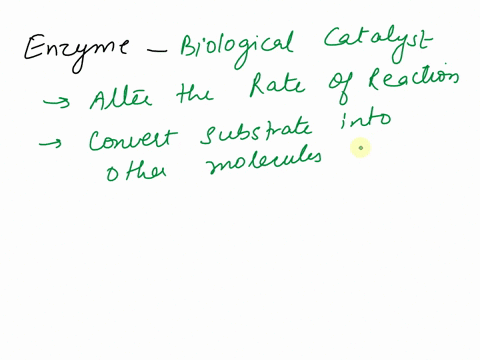 Enzyme - Biological Catalyst
→ Alter the Rate of Reaction
→ Convert substrate into
other molecules